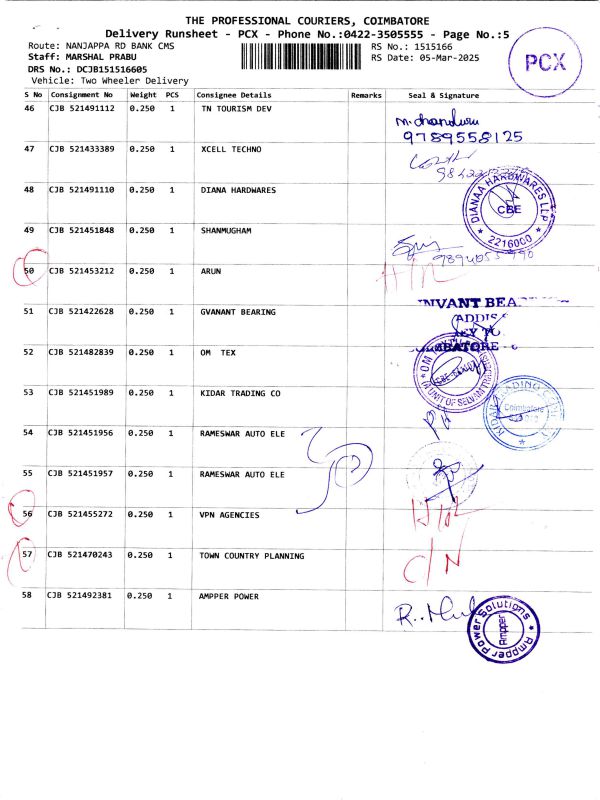 THE PROFESSIONAL COURIERS, COIMBATORE
Delivery Runsheet - PCX - Phone No.:0422-3505555 - Page No.:5
Route: NANJAPPA RD BANK CMS
RS No.: 1515166
Staff: MARSHAL PRABU
RS Date: 05-Mar-2025
DRS No.: DCJB151516605
Vehicle: Two Wheeler Delivery
PCX
S No Consignment No Weight PCS Consignee Details Remarks Seal & Signature
46 CJB 521491112 0.250 1 TN TOURISM DEV
9789558125
47 CJB 521433389 0.250 1 XCELL TECHNO
48 CJB 521491110 0.250 1 DIANA HARDWARES
DIANAA HARDWARES LLP
CBE
2216000
49 CJB 521451848 0.250 1 SHANMUGHAM
50 CJB 521453212 0.250 1 ARUN
51 CJB 521422628 0.250 1 GVANANT BEARING
52 CJB 521482839 0.250 1 OM TEX
53 CJB 521451989 0.250 1 KIDAR TRADING CO
Coimbatore
54 CJB 521451956 0.250 1 RAMESWAR AUTO ELE
55 CJB 521451957 0.250 1 RAMESWAR AUTO ELE
56 CJB 521455272 0.250 1 VPN AGENCIES
57 CJB 521470243 0.250 1 TOWN COUNTRY PLANNING
C/N
58 CJB 521492381 0.250 1 AMPPER POWER
Ampper Power Solutions
Ampper